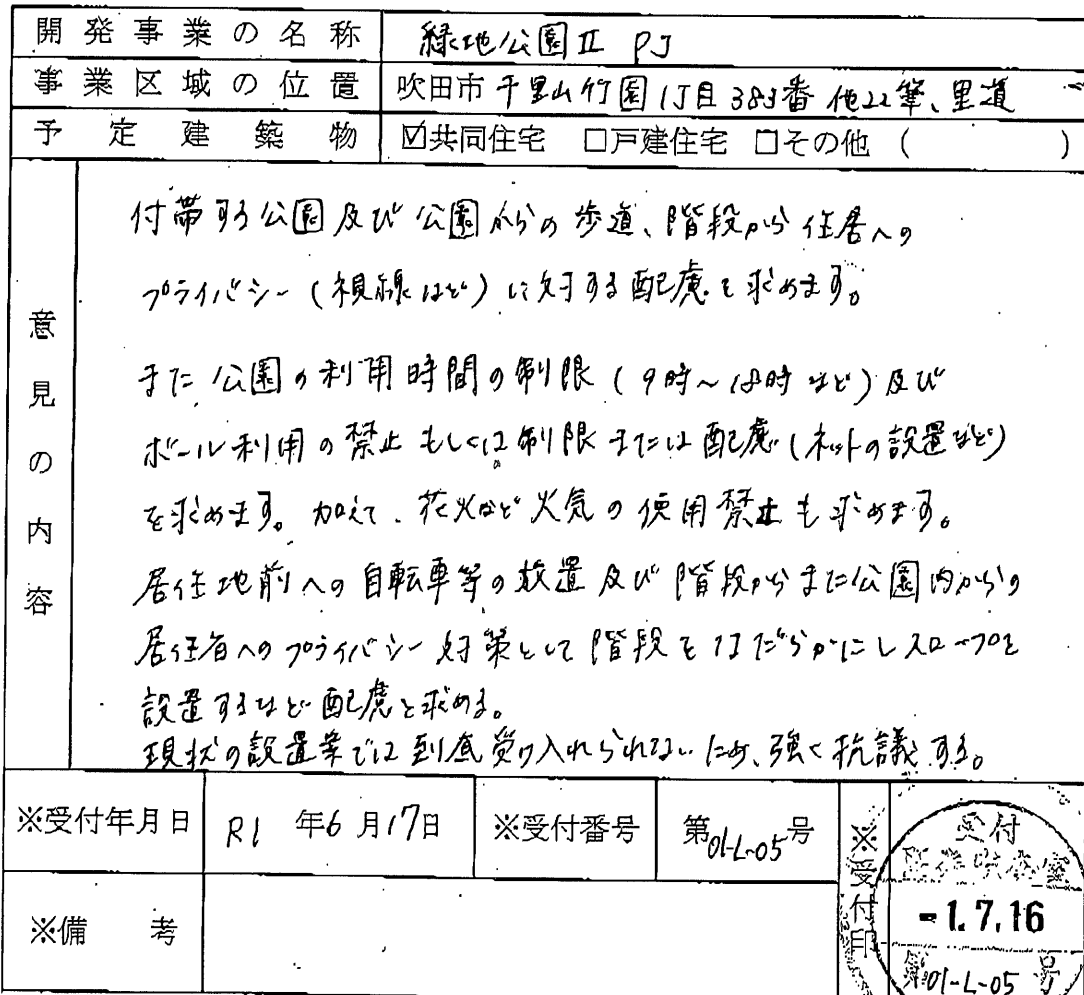 開発事業の名称 緑地公園Ⅱ PJ
事業区域の位置 吹田市 千里山竹園1丁目383番 他22筆、里道
予定建築物 ☑共同住宅 □戸建住宅 □その他 ( )
意見の内容
付帯する公園及び公園からの歩道、階段から住居への
プライバシー(視線など)に対する配慮を求めます。
また公園の利用時間の制限(9時~18時など)及び
ボール利用の禁止もしくは制限または配慮(ネットの設置など)
を求めます。加えて、花火など火気の使用禁止も求めます。
居住地前への自転車等の放置及び階段からまた公園内からの
居住者へのプライバシー対策として階段をなだらかにしスロープを
設置するなど配慮を求める。
現状の設置案では到底受け入れられないため、強く抗議する。
※受付年月日 R1 年6月17日 ※受付番号 第01-L-05号 ※受付印
受付
-1.7.16
第01-L-05号
※備考